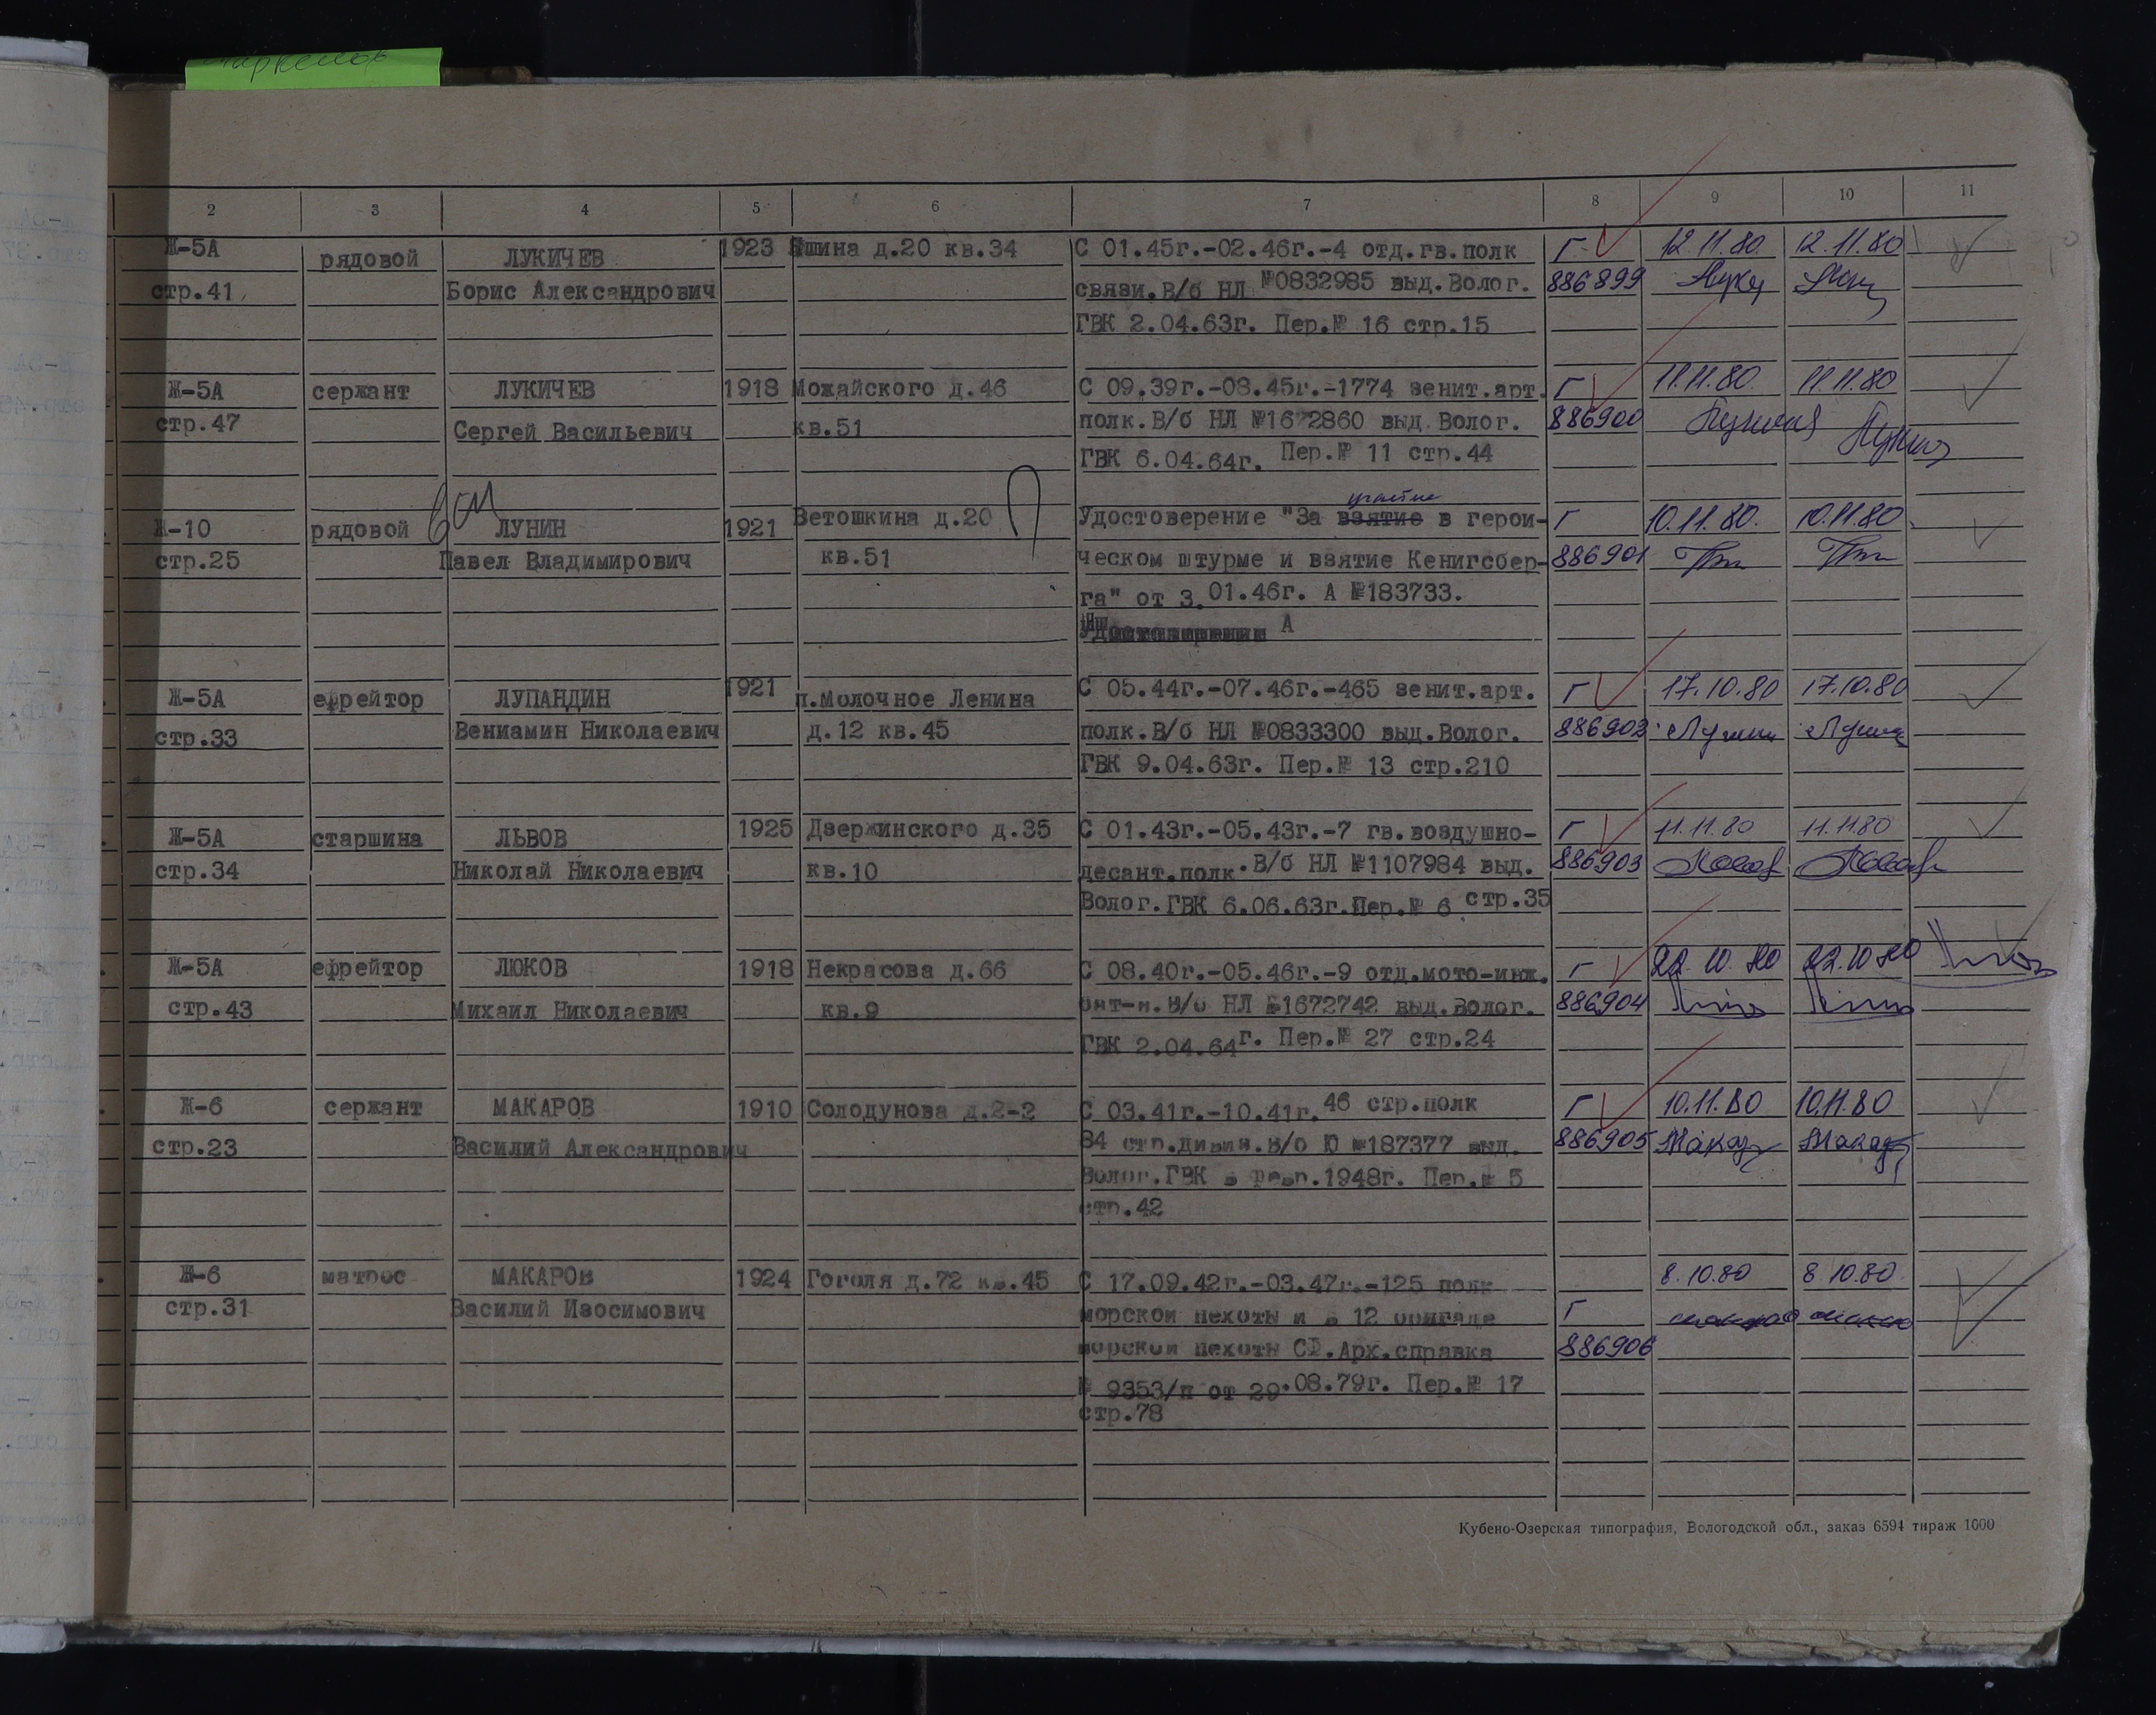 2 3 4 5 6 7 8 9 10 11
Ж-5А рядовой ЛУКИЧЕВ 1923 д.20 кв.34 С 01.45г.-02.46г.-4 отд.гв.полк Г 12.11.80. 12.11.80
стр.41 Борис Александрович связи.В/б НЛ №0832985 выд.Волог. 886899
ГВК 2.04.63г. Пер.№ 16 стр.15
Ж-5А сержант ЛУКИЧЕВ 1918 Можайского д.46 С 09.39г.-08.45г.-1774 зенит.арт. Г 11.11.80. 11.11.80
стр.47 Сергей Васильевич кв.51 полк.В/б НЛ №1672860 выд.Волог. 886900
ГВК 6.04.64г. Пер.№ 11 стр.44
участие
Ж-10 рядовой ЛУНИН 1921 Ветошкина д.20 Удостоверение "За взятие в герои- Г 10.11.80. 10.11.80.
стр.25 Павел Владимирович кв.51 ческом штурме и взятие Кенигсбер- 886901
га" от 3.01.46г. А №183733.
А
Ж-5А ефрейтор ЛУПАНДИН 1921 п.Молочное Ленина С 05.44г.-07.46г.-465 зенит.арт. Г 17.10.80 17.10.80
стр.33 Вениамин Николаевич д.12 кв.45 полк.В/б НЛ №0833300 выд.Волог. 886902
ГВК 9.04.63г. Пер.№ 13 стр.210
Ж-5А старшина ЛЬВОВ 1925 Дзержинского д.35 С 01.43г.-05.43г.-7 гв.воздушно- Г 11.11.80 11.11.80
стр.34 Николай Николаевич кв.10 десант.полк.В/б НЛ №1107984 выд. 886903
Волог.ГВК 6.06.63г.Пер.№ 6 стр.35
Ж-5А ефрейтор ЛЮКОВ 1918 Некрасова д.66 С 08.40г.-05.46г.-9 отд.мото-инж. Г 22.10.80 22.10.80
стр.43 Михаил Николаевич кв.9 бат-н.В/б НЛ №1672742 выд.Волог. 886904
ГВК 2.04.64г. Пер.№ 27 стр.24
Ж-6 сержант МАКАРОВ 1910 Солодунова д.2-2 С 03.41г.-10.41г. 46 стр.полк Г 10.11.80 10.11.80
стр.23 Василий Александрович 84 стр.дивиз.В/б Ю №187377 выд. 886905 Макар Макар
Волог.ГВК в февр.1948г. Пер.№ 5
стр.42
Ж-6 матрос МАКАРОВ 1924 Гоголя д.72 кв.45 С 17.09.42г.-03.47г.-125 полк 8.10.80 8.10.80
стр.31 Василий Изосимович морской пехоты и в 12 бригаде Г
морской пехоты СФ.Арх.справка 886906
№ 9353/п от 29.08.79г. Пер.№ 17
стр.78
Кубено-Озерская типография, Вологодской обл., заказ 6594 тираж 1000